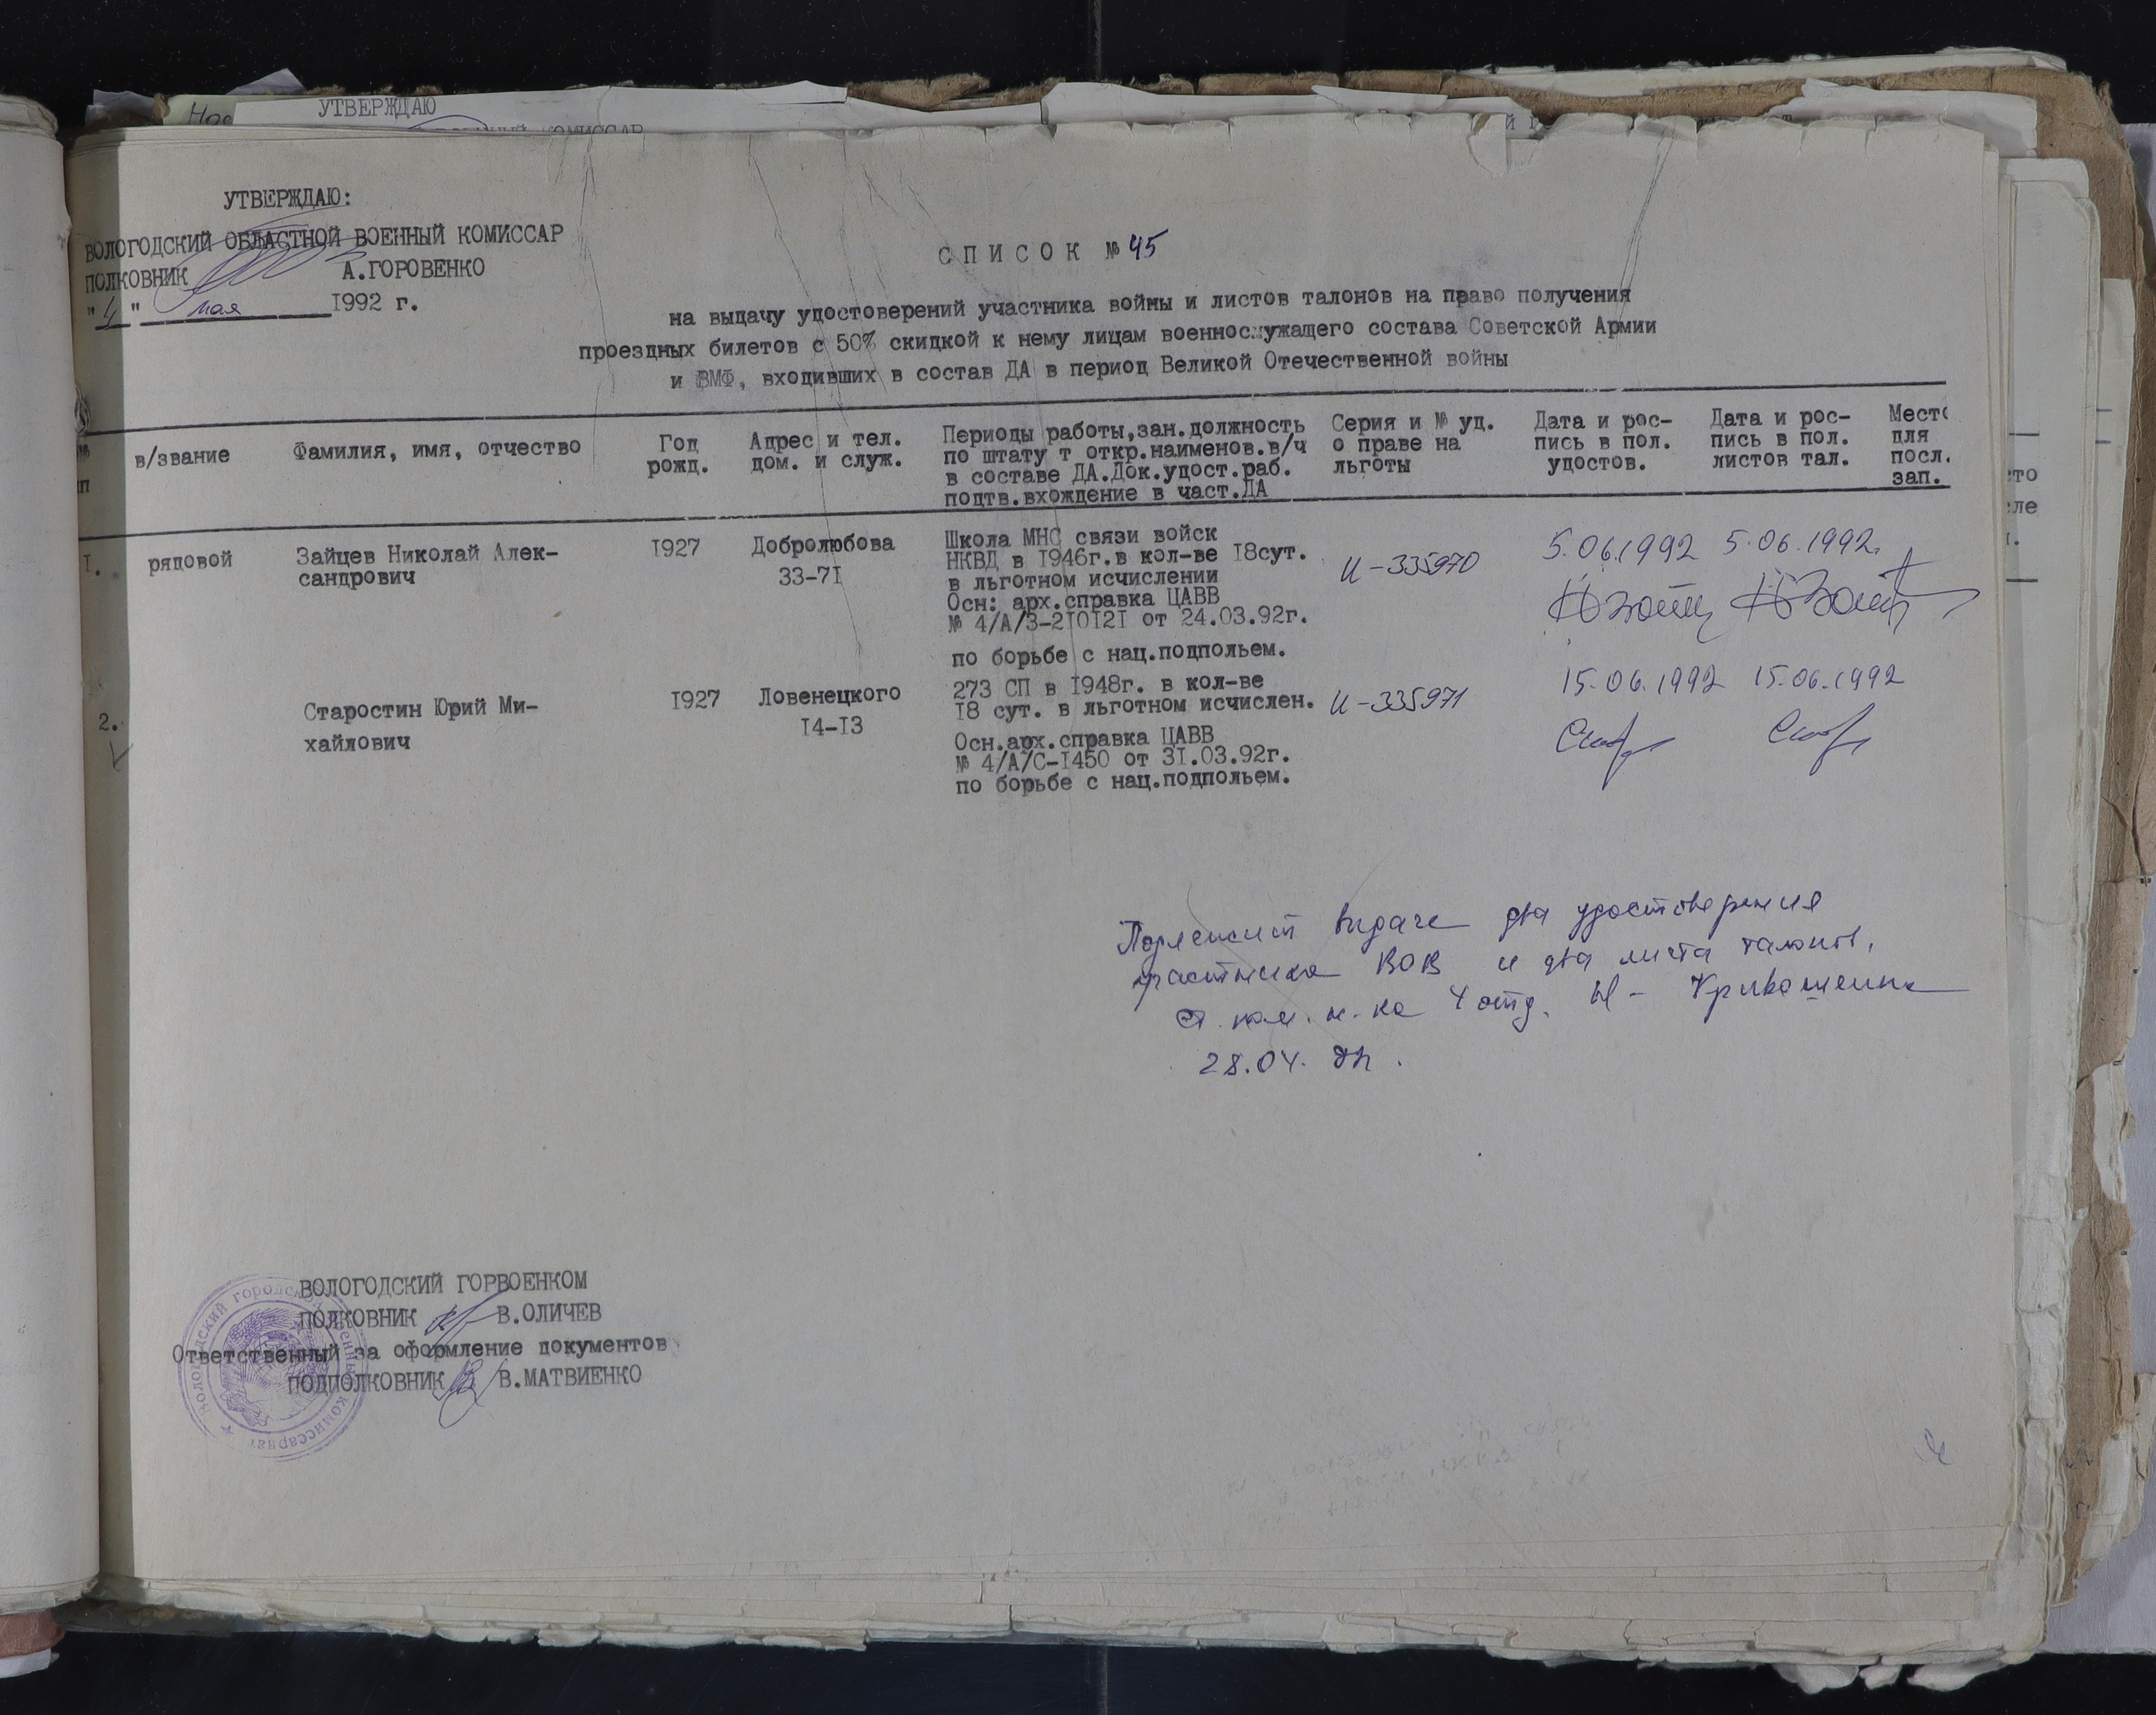 УТВЕРЖДАЮ
УТВЕРЖДАЮ:
ВОЛОГОДСКИЙ ОБЛАСТНОЙ ВОЕННЫЙ КОМИССАР
ПОЛКОВНИК А.ГОРОВЕНКО
"4" мая 1992 г.
СПИСОК № 45
на выдачу удостоверений участника войны и листов талонов на право получения
проездных билетов с 50% скидкой к нему лицам военнослужащего состава Советской Армии
и ВМФ, входивших в состав ДА в период Великой Отечественной войны
№ пп
в/звание
Фамилия, имя, отчество
Год
рожд.
Адрес и тел.
дом. и служ.
Периоды работы,зан.должность
по штату т откр.наименов.в/ч
в составе ДА.Док.удост.раб.
подтв.вхождение в част.ДА
Серия и № уд.
о праве на
льготы
Дата и рос-
пись в пол.
удостов.
Дата и рос-
пись в пол.
листов тал.
Место
для
посл.
зап.
1.
рядовой
Зайцев Николай Алек-
сандрович
1927
Добролюбова
33-71
Школа МНС связи войск
НКВД в 1946г.в кол-ве 18сут.
в льготном исчислении
Осн: арх.справка ЦАВВ
№ 4/А/З-210121 от 24.03.92г.
по борьбе с нац.подпольем.
И-335970
5.06.1992
5.06.1992.
2.
Старостин Юрий Ми-
хайлович
1927
Ловенецкого
14-13
273 СП в 1948г. в кол-ве
18 сут. в льготном исчислен.
Осн.арх.справка ЦАВВ
№ 4/А/С-1450 от 31.03.92г.
по борьбе с нац.подпольем.
И-335971
15.06.1992
15.06.1992
Подлежит выдаче два удостоверения
участника ВОВ и два листа талонов.
Ст. пом. н-ка 4 отд. Кривошеина
28.04.
ВОЛОГОДСКИЙ ГОРВОЕНКОМ
ПОЛКОВНИК В.ОЛИЧЕВ
Ответственный за оформление документов
ПОДПОЛКОВНИК В.МАТВИЕНКО
Вологодский городской военный комиссариат